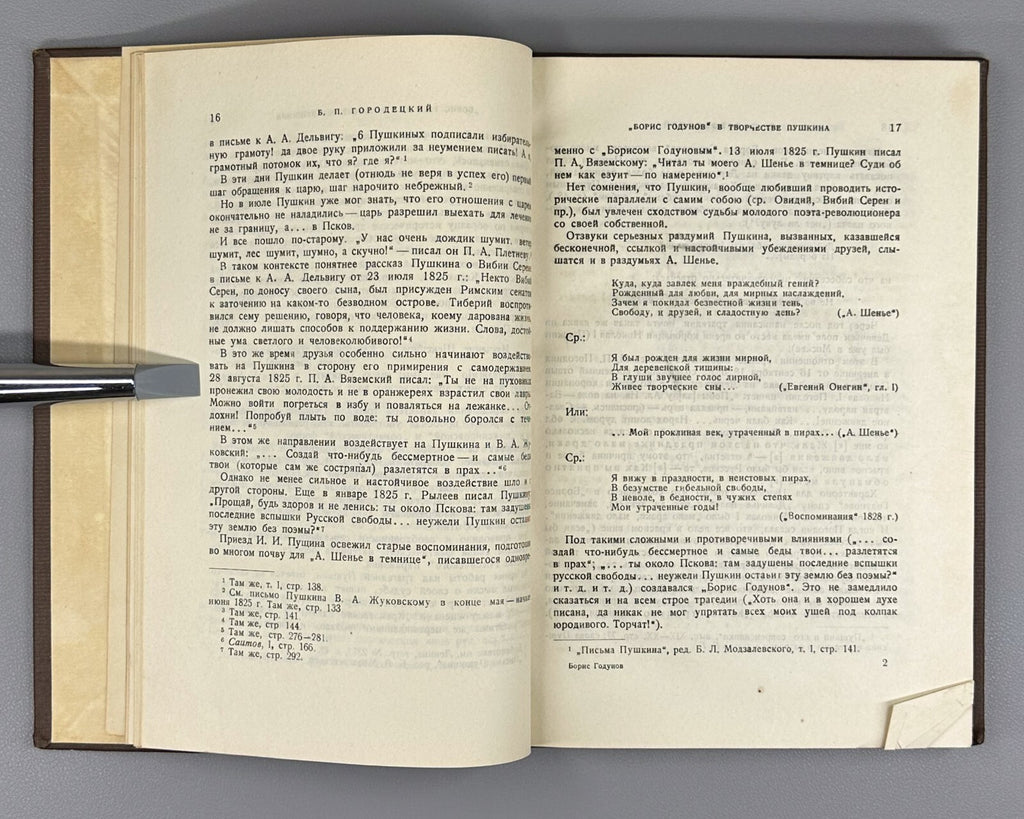 16
Б. П. ГОРОДЕЦКИЙ
в письме к А. А. Дельвигу: „6 Пушкиных подписали избиратель
ную грамоту! да двое руку приложили за неумением писать! А я,
грамотный потомок их, что я? где я?“ 1
В эти дни Пушкин делает (отнюдь не веря в успех его) первый
шаг обращения к царю, шаг нарочито небрежный. 2
Но в июле Пушкин уже мог знать, что его отношения с царем
окончательно не наладились — царь разрешил выехать для лечения
не за границу, а... в Псков.
И все пошло по-старому. „У нас очень дождик шумит, ветер
шумит, лес шумит, шумно, а скучно!“ — писал он П. А. Плетневу.
В таком контексте понятнее рассказ Пушкина о Вибии Серене
в письме к А. А. Дельвигу от 23 июля 1825 г.: „Некто Вибий
Серен, по доносу своего сына, был присужден Римским сенатом
к заточению на каком-то безводном острове. Тиберий воспроти
вился сему решению, говоря, что человека, коему дарована жизнь,
не должно лишать способов к поддержанию жизни. Слова, достой
ные ума светлого и человеколюбивого!“ 4
В это же время друзья особенно сильно начинают воздейство
вать на Пушкина в сторону его примирения с самодержавием.
28 августа 1825 г. П. А. Вяземский писал: „Ты не на пуховиках
пронежил свою молодость и не в оранжереях взрастил свои лавры.
Можно войти погреться в избу и поваляться на лежанке... От
дохни! Попробуй плыть по воде: ты довольно боролся с тече
нием...“ 5
В этом же направлении воздействует на Пушкина и В. А. Жу
ковский: „... Создай что-нибудь бессмертное — и самые беды
твои (которые сам же состряпал) разлетятся в прах ..“ 6
Однако не менее сильное и настойчивое воздействие шло и с
другой стороны. Еще в январе 1825 г. Рылеев писал Пушкину
„Прощай, будь здоров и не ленись: ты около Пскова: там задушены
последние вспышки Русской свободы... неужели Пушкин оставит
эту землю без поэмы?“ 7
Приезд И. И. Пущина освежил старые воспоминания, подготовив
во многом почву для „А. Шенье в темнице“, писавшегося одновре
1 Там же, т. I, стр. 138.
2 См. письмо Пушкина В. А. Жуковскому в конце мая — начале
июня 1825 г. Там же, стр. 133
3 Там же, стр. 141.
4 Там же, стр 144.
5 Там же, стр. 276—281.
6 Саитов, I, стр. 166.
7 Там же, стр. 292.
„БОРИС ГОДУНОВ“ В ТВОРЧЕСТВЕ ПУШКИНА
17
менно с „Борисом Годуновым“. 13 июля 1825 г. Пушкин писал
П. А. Вяземскому: „Читал ты моего А. Шенье в темнице? Суди об
нем как езуит — по намерению“. 1
Нет сомнения, что Пушкин, вообще любивший проводить исто-
рические параллели с самим собою (ср. Овидий, Вибий Серен и
пр.), был увлечен сходством судьбы молодого поэта-революционера
со своей собственной.
Отзвуки серьезных раздумий Пушкина, вызванных, казавшейся
бесконечной, ссылкой и настойчивыми убеждениями друзей, слы-
шатся и в раздумьях А. Шенье.
Куда, куда завлек меня враждебный гений?
Рожденный для любви, для мирных наслаждений,
Зачем я покидал безвестной жизни тень,
Свободу, и друзей, и сладостную лень? („А. Шенье“)
Ср.:
Я был рожден для жизни мирной,
Для деревенской тишины:
В глуши звучнее голос лирной,
Живее творческие сны... („Евгений Онегин“, гл. I)
Или:
... Мой проклиная век, утраченный в пирах... („А. Шенье“)
Ср.:
Я вижу в праздности, в неистовых пирах,
В безумстве гибельной свободы,
В неволе, в бедности, в чужих степях
Мои утраченные годы!
(„Воспоминания“ 1828 г.)
Под такими сложными и противоречивыми влияниями („... со-
здай что-нибудь бессмертное и самые беды твои... разлетятся
в прах“; „... ты около Пскова: там задушены последние вспышки
русской свободы... неужели Пушкин оставит эту землю без поэмы?“
и т. д. и т. д.) создавался „Борис Годунов“. Это не замедлило
сказаться и на всем строе трагедии („Хоть она и в хорошем духе
писана, да никак не мог упрятать всех моих ушей под колпак
юродивого. Торчат!“).
1 „Письма Пушкина“, ред. Б. Л. Модзалевского, т. I, стр. 141.
Борис Годунов
2